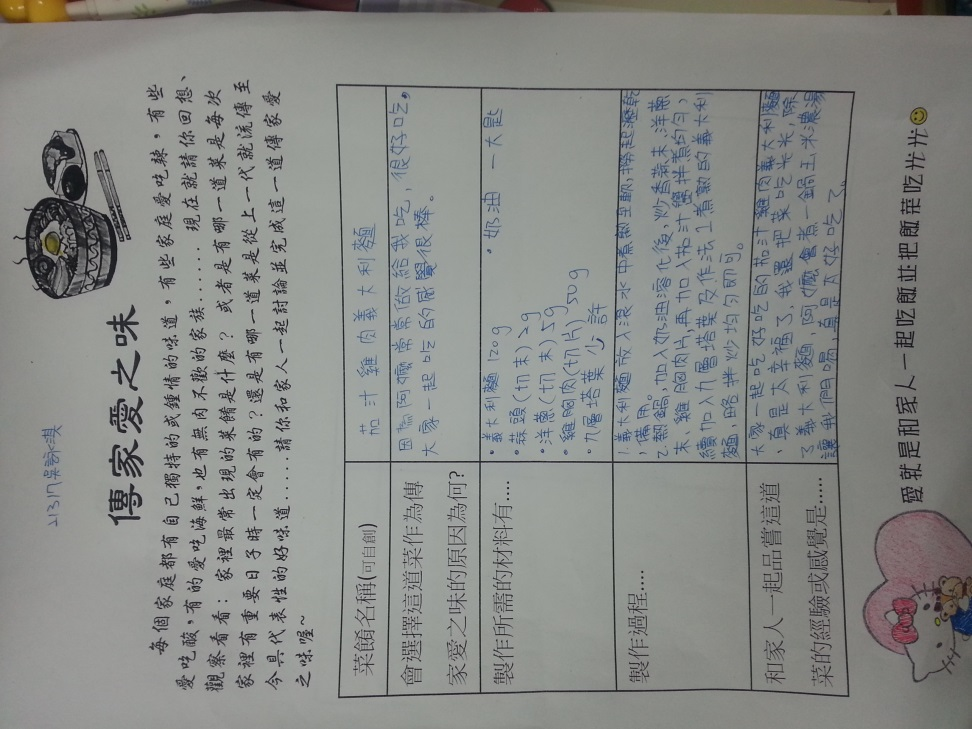 21317吳詠淇
傳家愛之味
每個家庭都有自己獨特的或鍾情的味道，有些家庭愛吃辣，有些
愛吃酸，有的愛吃海鮮，也有無肉不歡的家族........現在就請你回想、
觀察看看：家裡最常出現的菜餚是什麼？或者是有哪一道菜是每次
家裡有重要日子時一定會有的？還是有哪一道菜是從上一代就流傳至
今具代表性的好味道......請你和家人一起討論並完成這一道傳家愛
之味喔~
菜餚名稱(可自創)
茄汁雞肉義大利麵
會選擇這道菜作為傳
家愛之味的原因為何?
因為阿嬤常常做給我吃，很好吃，
大家一起吃的感覺很棒。
製作所需的材料有....
•義大利麵120g •奶油 一大匙
•蒜頭(切末)2g
•洋蔥(切末)5g
•雞胸肉(切片)50g
•九層塔葉少許
製作過程....
1.義大利麵放入滾水中煮熟至軟,撈起瀝乾
,備用。
2.熱鍋,加入奶油溶化後,炒香蒜末、洋蔥
末、雞胸肉片,再加入茄汁醬拌煮均勻,
續加入九層塔葉及作法1煮熟的義大利
麵,略拌炒均勻即可。
和家人一起品嘗這道
菜的經驗或感覺是......
大家一起吃好吃的茄汁雞肉義大利麵
,真是太幸福了,我還把菜吃光光,除
了義大利麵,阿嬤會煮一鍋玉米濃湯
讓我們喝,真是太好吃了。
愛就是和家人一起吃飯並把飯菜吃光光